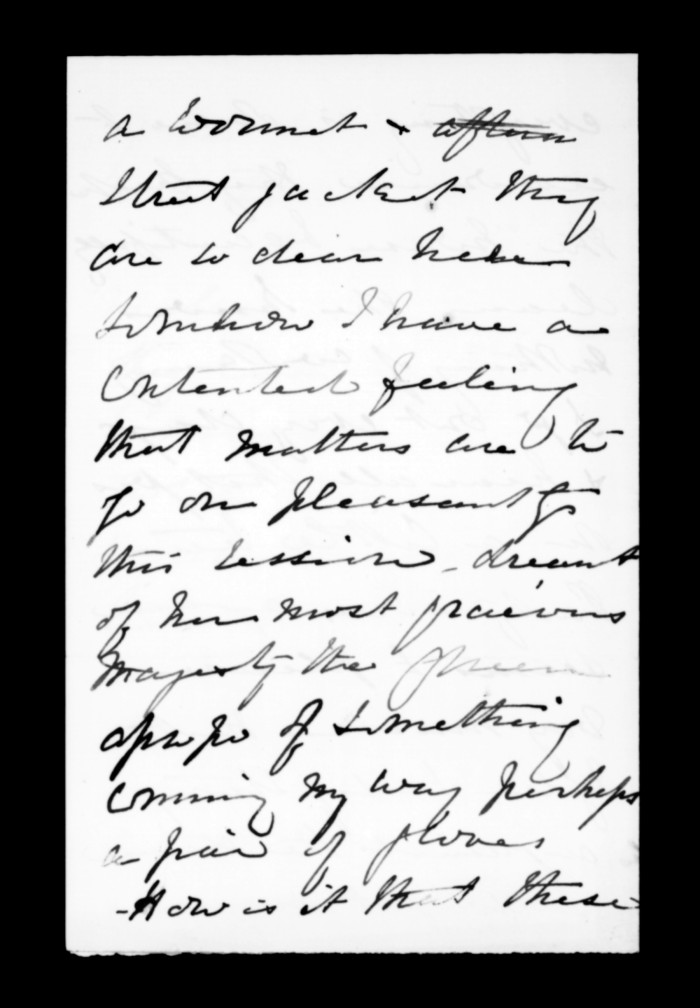 a bonnet & aftern
Street jacket they
are so dear here
Somehow I have a
contented feeling
that matters are to
go on pleasantly
this session - dreamt
of her most gracious
Majesty the Queen
apropo of something
coming my way perhaps
a pair of gloves
- How is it that these